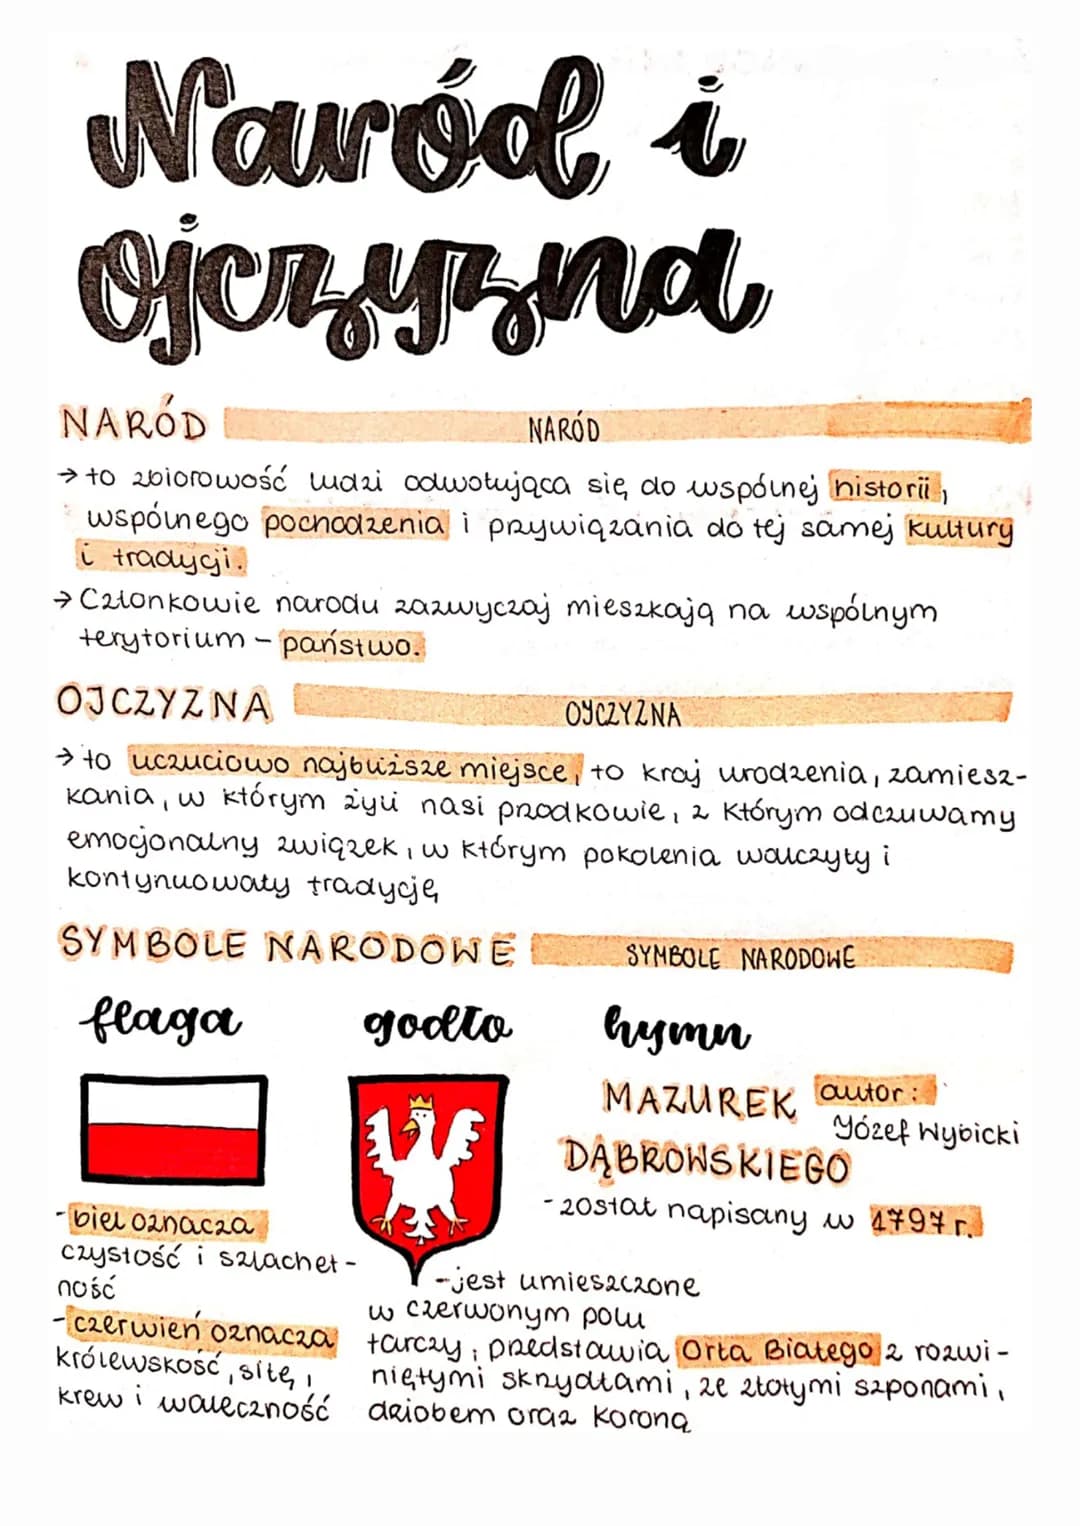 Naród i
ojczyzna
NARÓD NARÓD
→ to zbiorowość ludzi odwołująca się do wspólnej historii,
wspólnego pochodzenia i przywiązania do tej samej kultury
i tradycji.
→ Członkowie narodu zazwyczaj mieszkają na wspólnym
terytorium - państwo.
OJCZYZNA OJCZYZNA
→ to uczuciowo najbliższe miejsce, to kraj urodzenia, zamiesz-
kania, w którym żyli nasi przodkowie, z którym odczuwamy
emocjonalny związek, w którym pokolenia walczyły i
kontynuowały tradycję
SYMBOLE NARODOWE SYMBOLE NARODOWE
flaga godło hymn
MAZUREK DĄBROWSKIEGO
autor:
Józef Wybicki
- został napisany w 1797 r.
- biel oznacza
czystość i szlachet-
ność
- czerwień oznacza
królewskość, siłę,
krew i waleczność
- jest umieszczone
w czerwonym polu
tarczy, przedstawia Orła Białego z rozwi-
niętymi skrzydłami, ze złotymi szponami,
dziobem oraz koroną